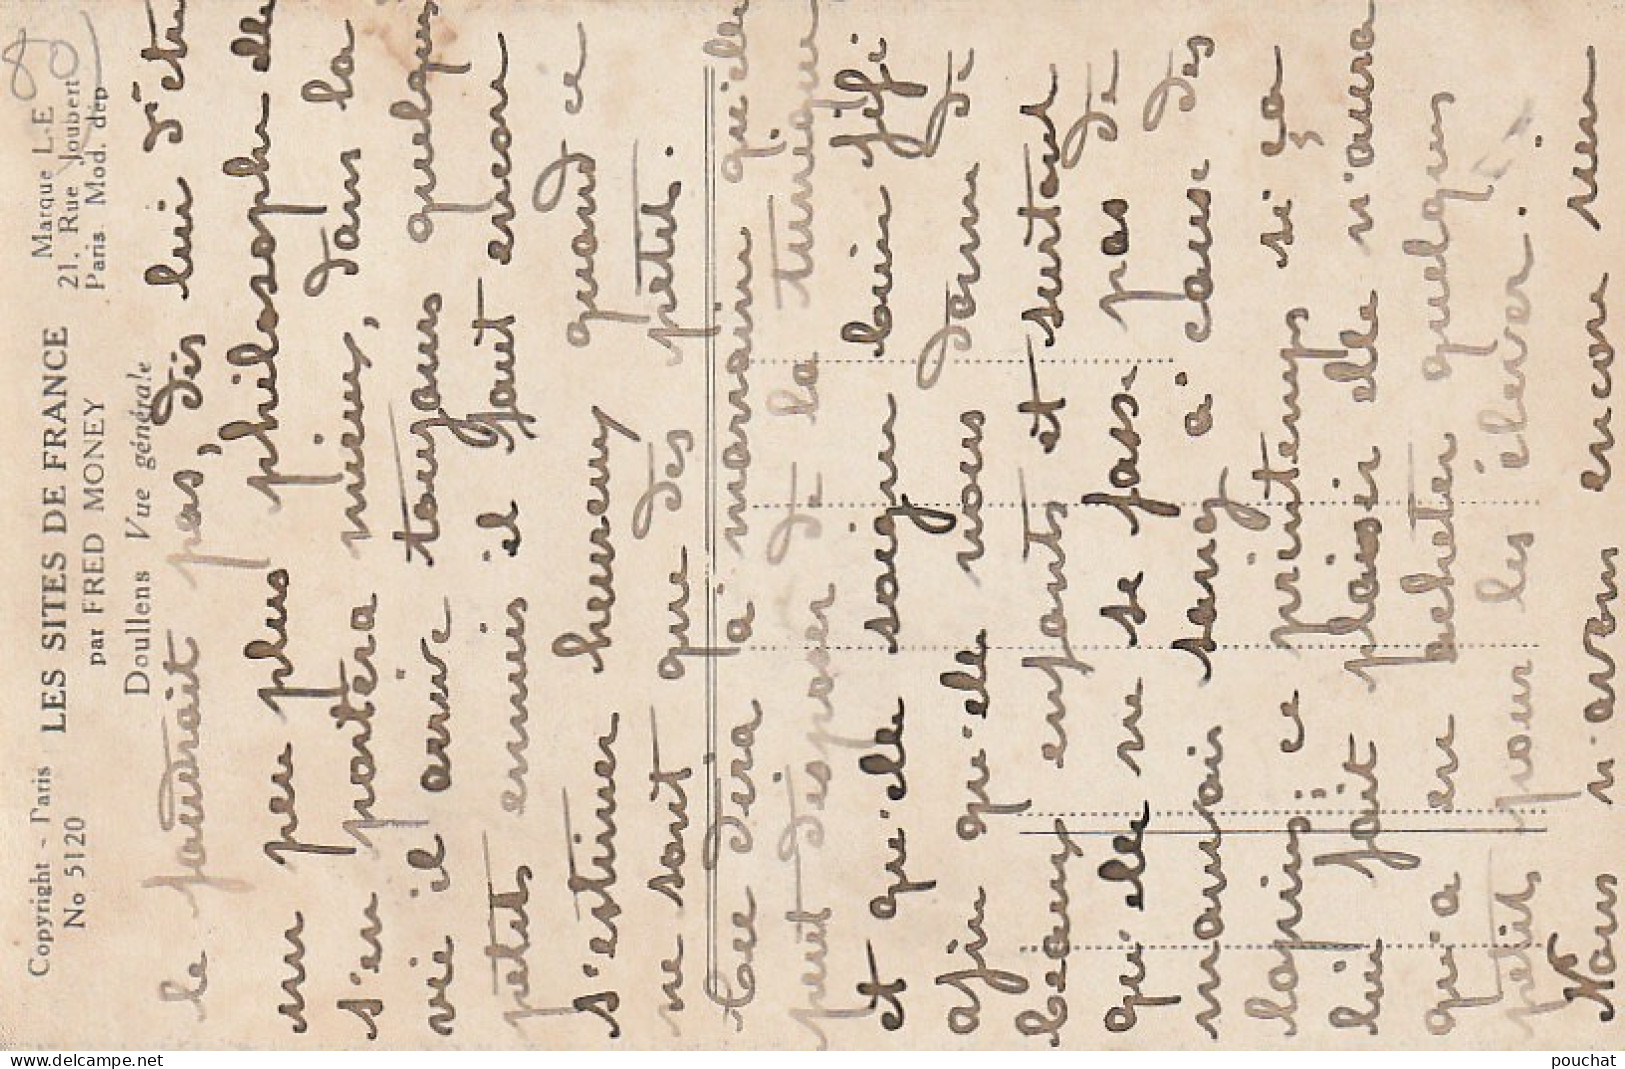 Copyright - Paris LES SITES DE FRANCE Marque L-E
No 5120 par FRED MONEY 21, Rue Joubert
Paris Mod. dép.
Doullens Vue générale
le faudrait pas, dis lui d'être
un peu plus philosophe elle
s'en portera mieux, dans la
vie il arrive toujours quelques
petits ennuis il faut encore
s'estimer heureux quand ce
ne sont que des petits.
Tu dira à maman qu'elle
peut disposer de la tunique
et qu'elle soigne bien fifi
afin qu'elle nous donne de
beaux enfants et surtout
qu'elle ne se fasse pas de
mauvais sang à cause des
lapins; ce printemps si ça
lui fait plaisir elle n'aura
qu'a en acheter quelques
petits pour les élever.
Nous n'avons encore rien
pouchat